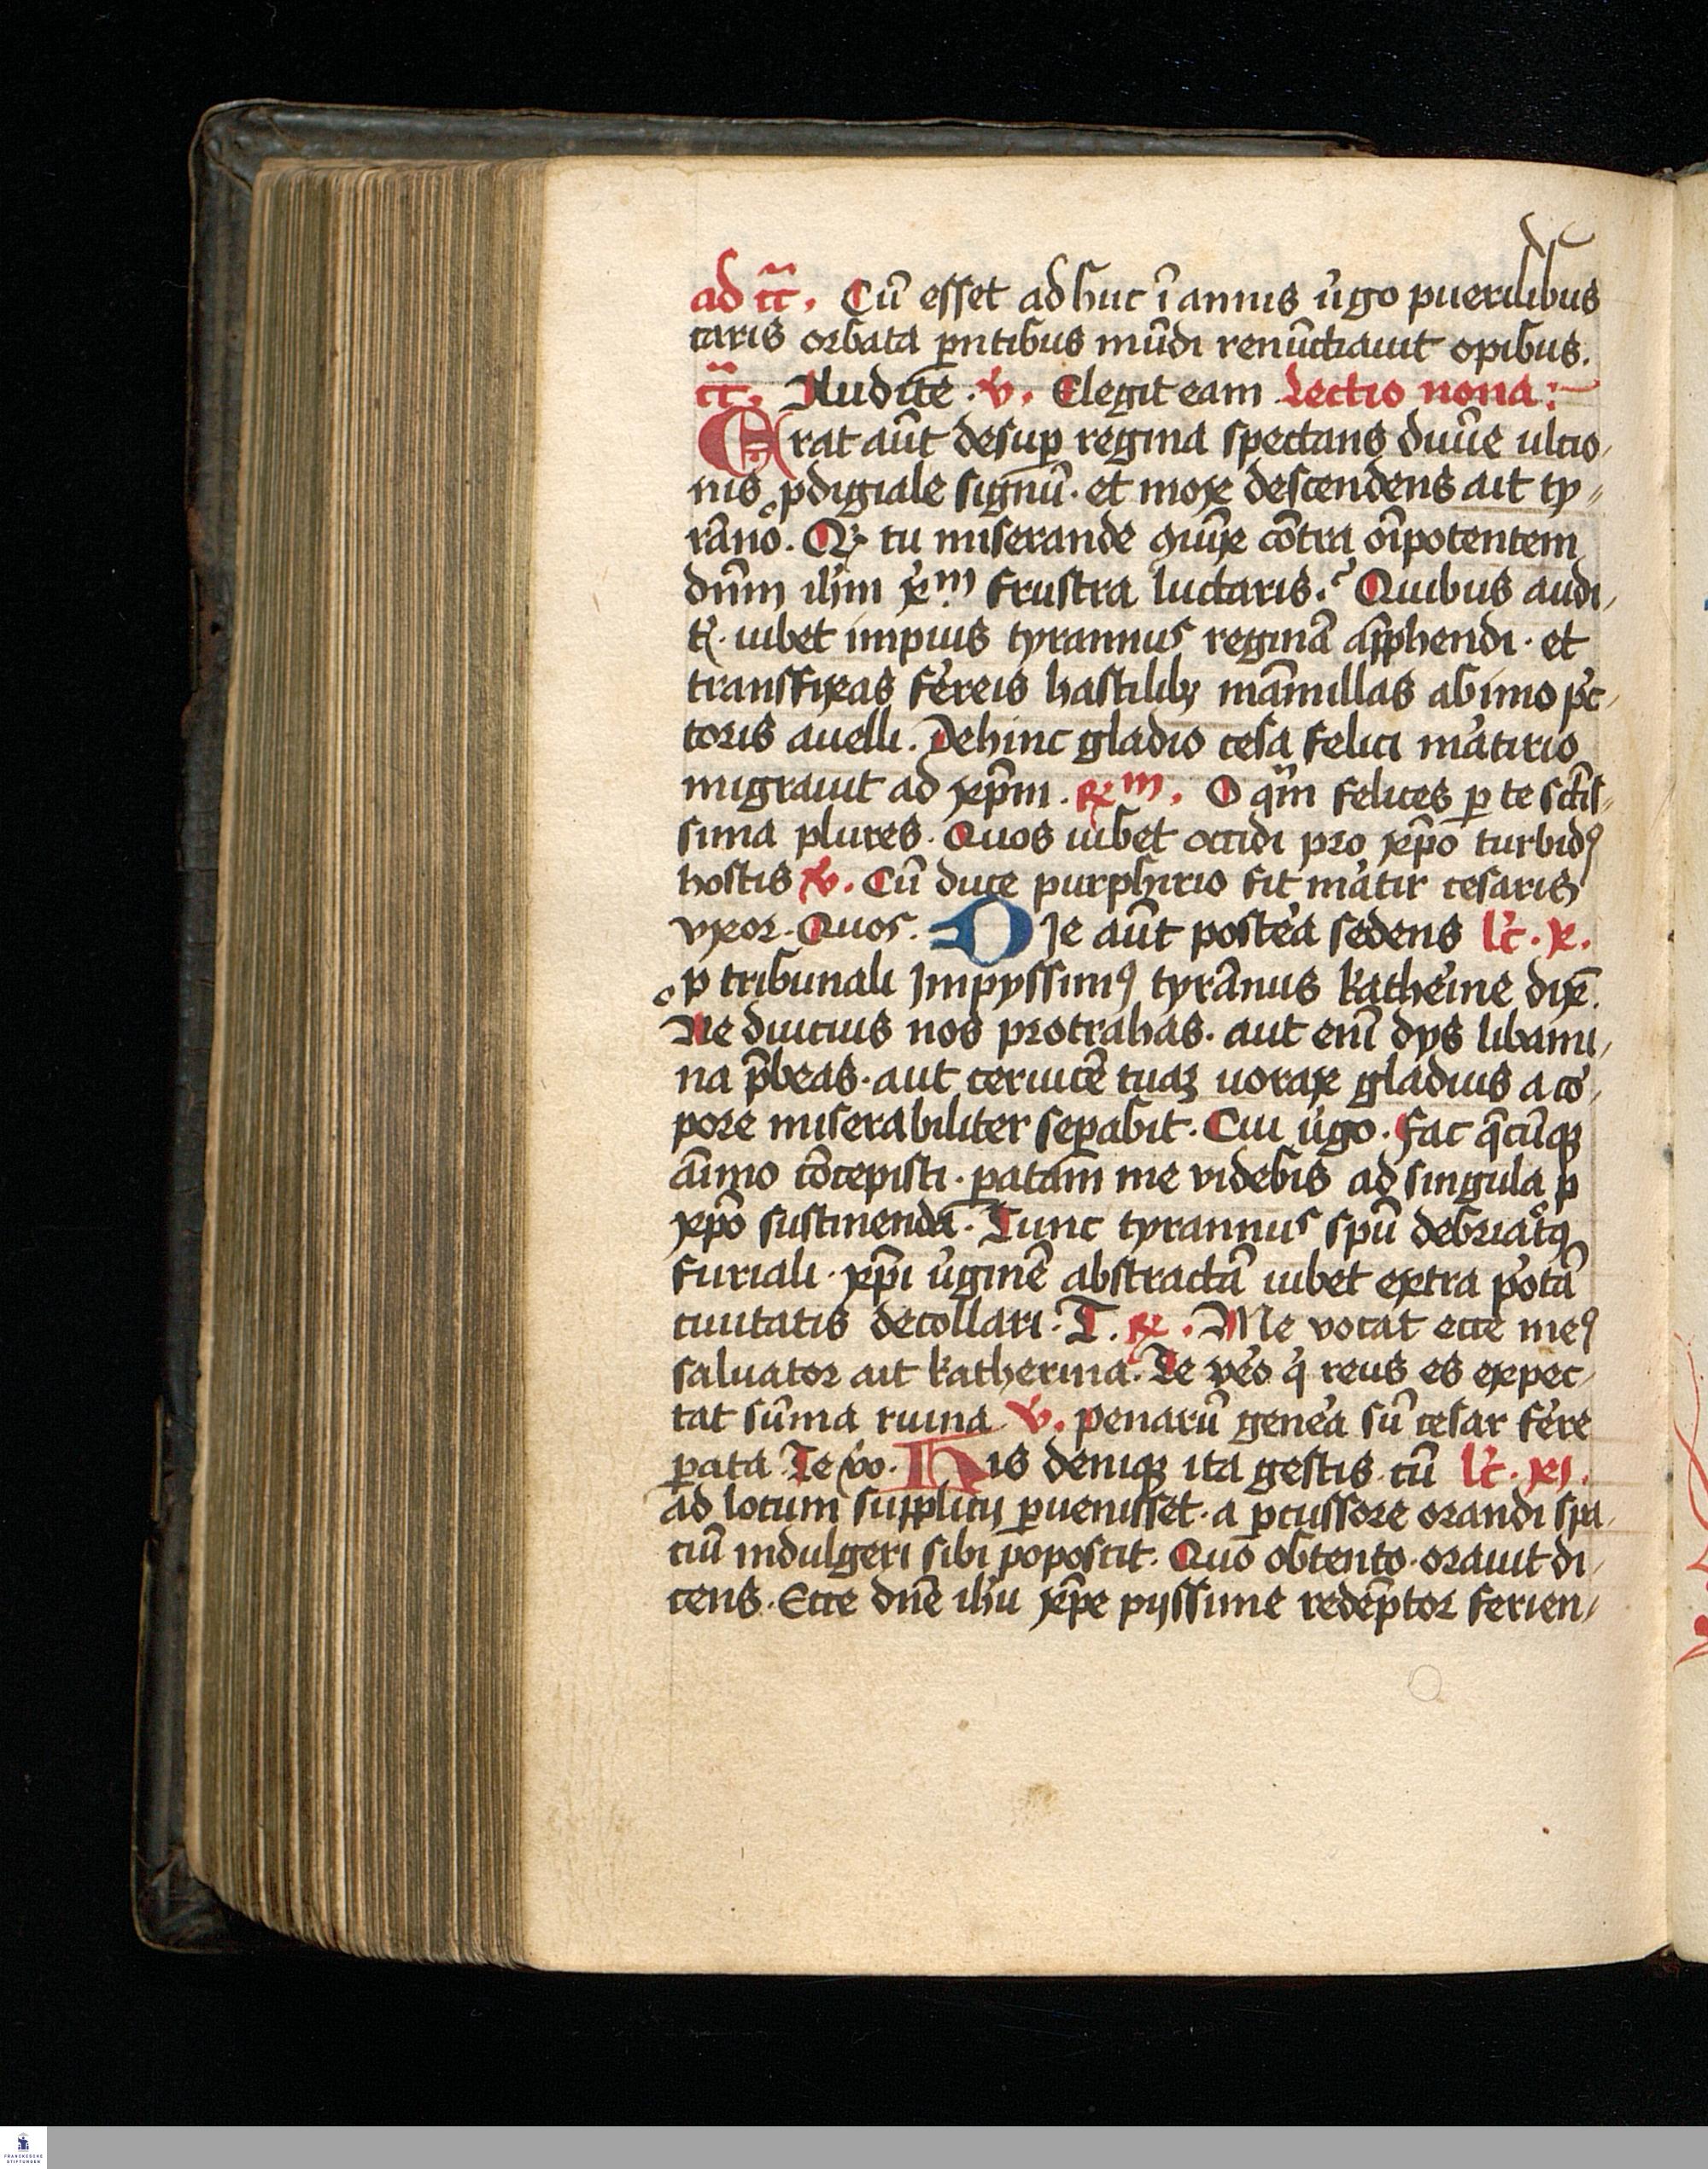 ad cc̄. Cū esset adhuc ī annis v̓go puerilibus
caris orbata pn̄tibus mūdi renūctiauit opibus.
cc̄. Audite. v̓. Elegit eam Lectio nona:
Erat aūt desup̲ regina spectans diuīe ulcio,
nis ꝓdigiale signū. et mox descendens ait ty,,
rāno. Qͥd tu miserande cōtra oīpotentem
dn̄m ih̄m xp̄m frustra luctaris.? Quibus audi,
tꝭ. iubet impius tyrannus reginā app̄hendi. et
transfixas fe̓reis hastilibꝫ māmillas ab imo pc̄,
toris auelli. Dehinc gladio cesa felici ma̓tirio
migrauit ad xp̄m. Rm. O qm̄ felices ꝑ te sctīs,
sima plures. Quos iubet occidi pro xp̄o turbidꝰ
hostis v̓. Cū duce purphirio fit ma̓tir cesaris
vxor. Quos. DIe aūt poste̓a sedens lc̄. x.
ꝓ tribunali Impyssimꝰ tyrānus kathe̓ine dix̄.
Ne diucius nos protrahas. aut enī dys libami,
na p̄beas. aut ceruicē tuaꝫ uorax gladius a co̓,
pore miserabiliter sepabit. Cui v̓go. Fac q̄cūqꝫ
aīmo cōcepisti. ꝑatam me videbis ad singula ꝓ
xp̄o sustinenda. Tunc tyrannus spū debriatꝰ
furiali. xp̄i v̓ginē abstractā iubet extra po̓tā
ciuitatis decollari. T. R. Me vocat ecce meꝰ
saluator ait katherina. Te ve̓o q̓ reus es expec,
tat sūma ruina v̓. Penarū gene̓a sū cesar fe̓re
ꝑata Te v̓o. His deniqꝫ ita gestis cū lc̄. xi.
ad locum supplicij ꝑuenisset. a ꝑcussore orandi spa,
ciū indulgeri sibi poposcit. Quo obtento. orauit di,
cens. Ecce dn̄e ih̄u xp̄e pijssime redēptor ferien,
FRANCKESCHE
STIFTUNGEN